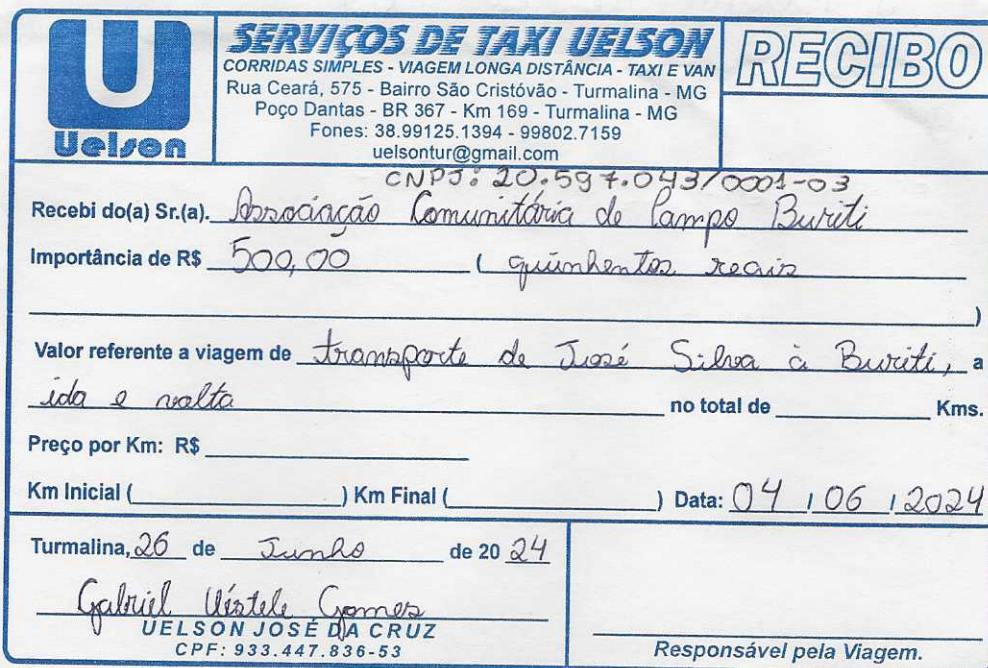 U
Uelson
SERVIÇOS DE TAXI UELSON
CORRIDAS SIMPLES - VIAGEM LONGA DISTÂNCIA - TAXI E VAN
Rua Ceará, 575 - Bairro São Cristóvão - Turmalina - MG
Poço Dantas - BR 367 - Km 169 - Turmalina - MG
Fones: 38.99125.1394 - 99802.7159
uelsontur@gmail.com
RECIBO
CNPJ: 20.597.043/0001-03
Recebi do(a) Sr.(a). Associação Comunitária de Campo Buriti
Importância de R$ 500,00 ( quinhentos reais
)
Valor referente a viagem de transporte de José Silva à Buriti, a
ida e volta no total de Kms.
Preço por Km: R$
Km Inicial ( ) Km Final ( ) Data: 04 / 06 / 2024
Turmalina, 26 de Junho de 20 24
Gabriel Gomes
UELSON JOSÉ DA CRUZ
CPF: 933.447.836-53
Responsável pela Viagem.